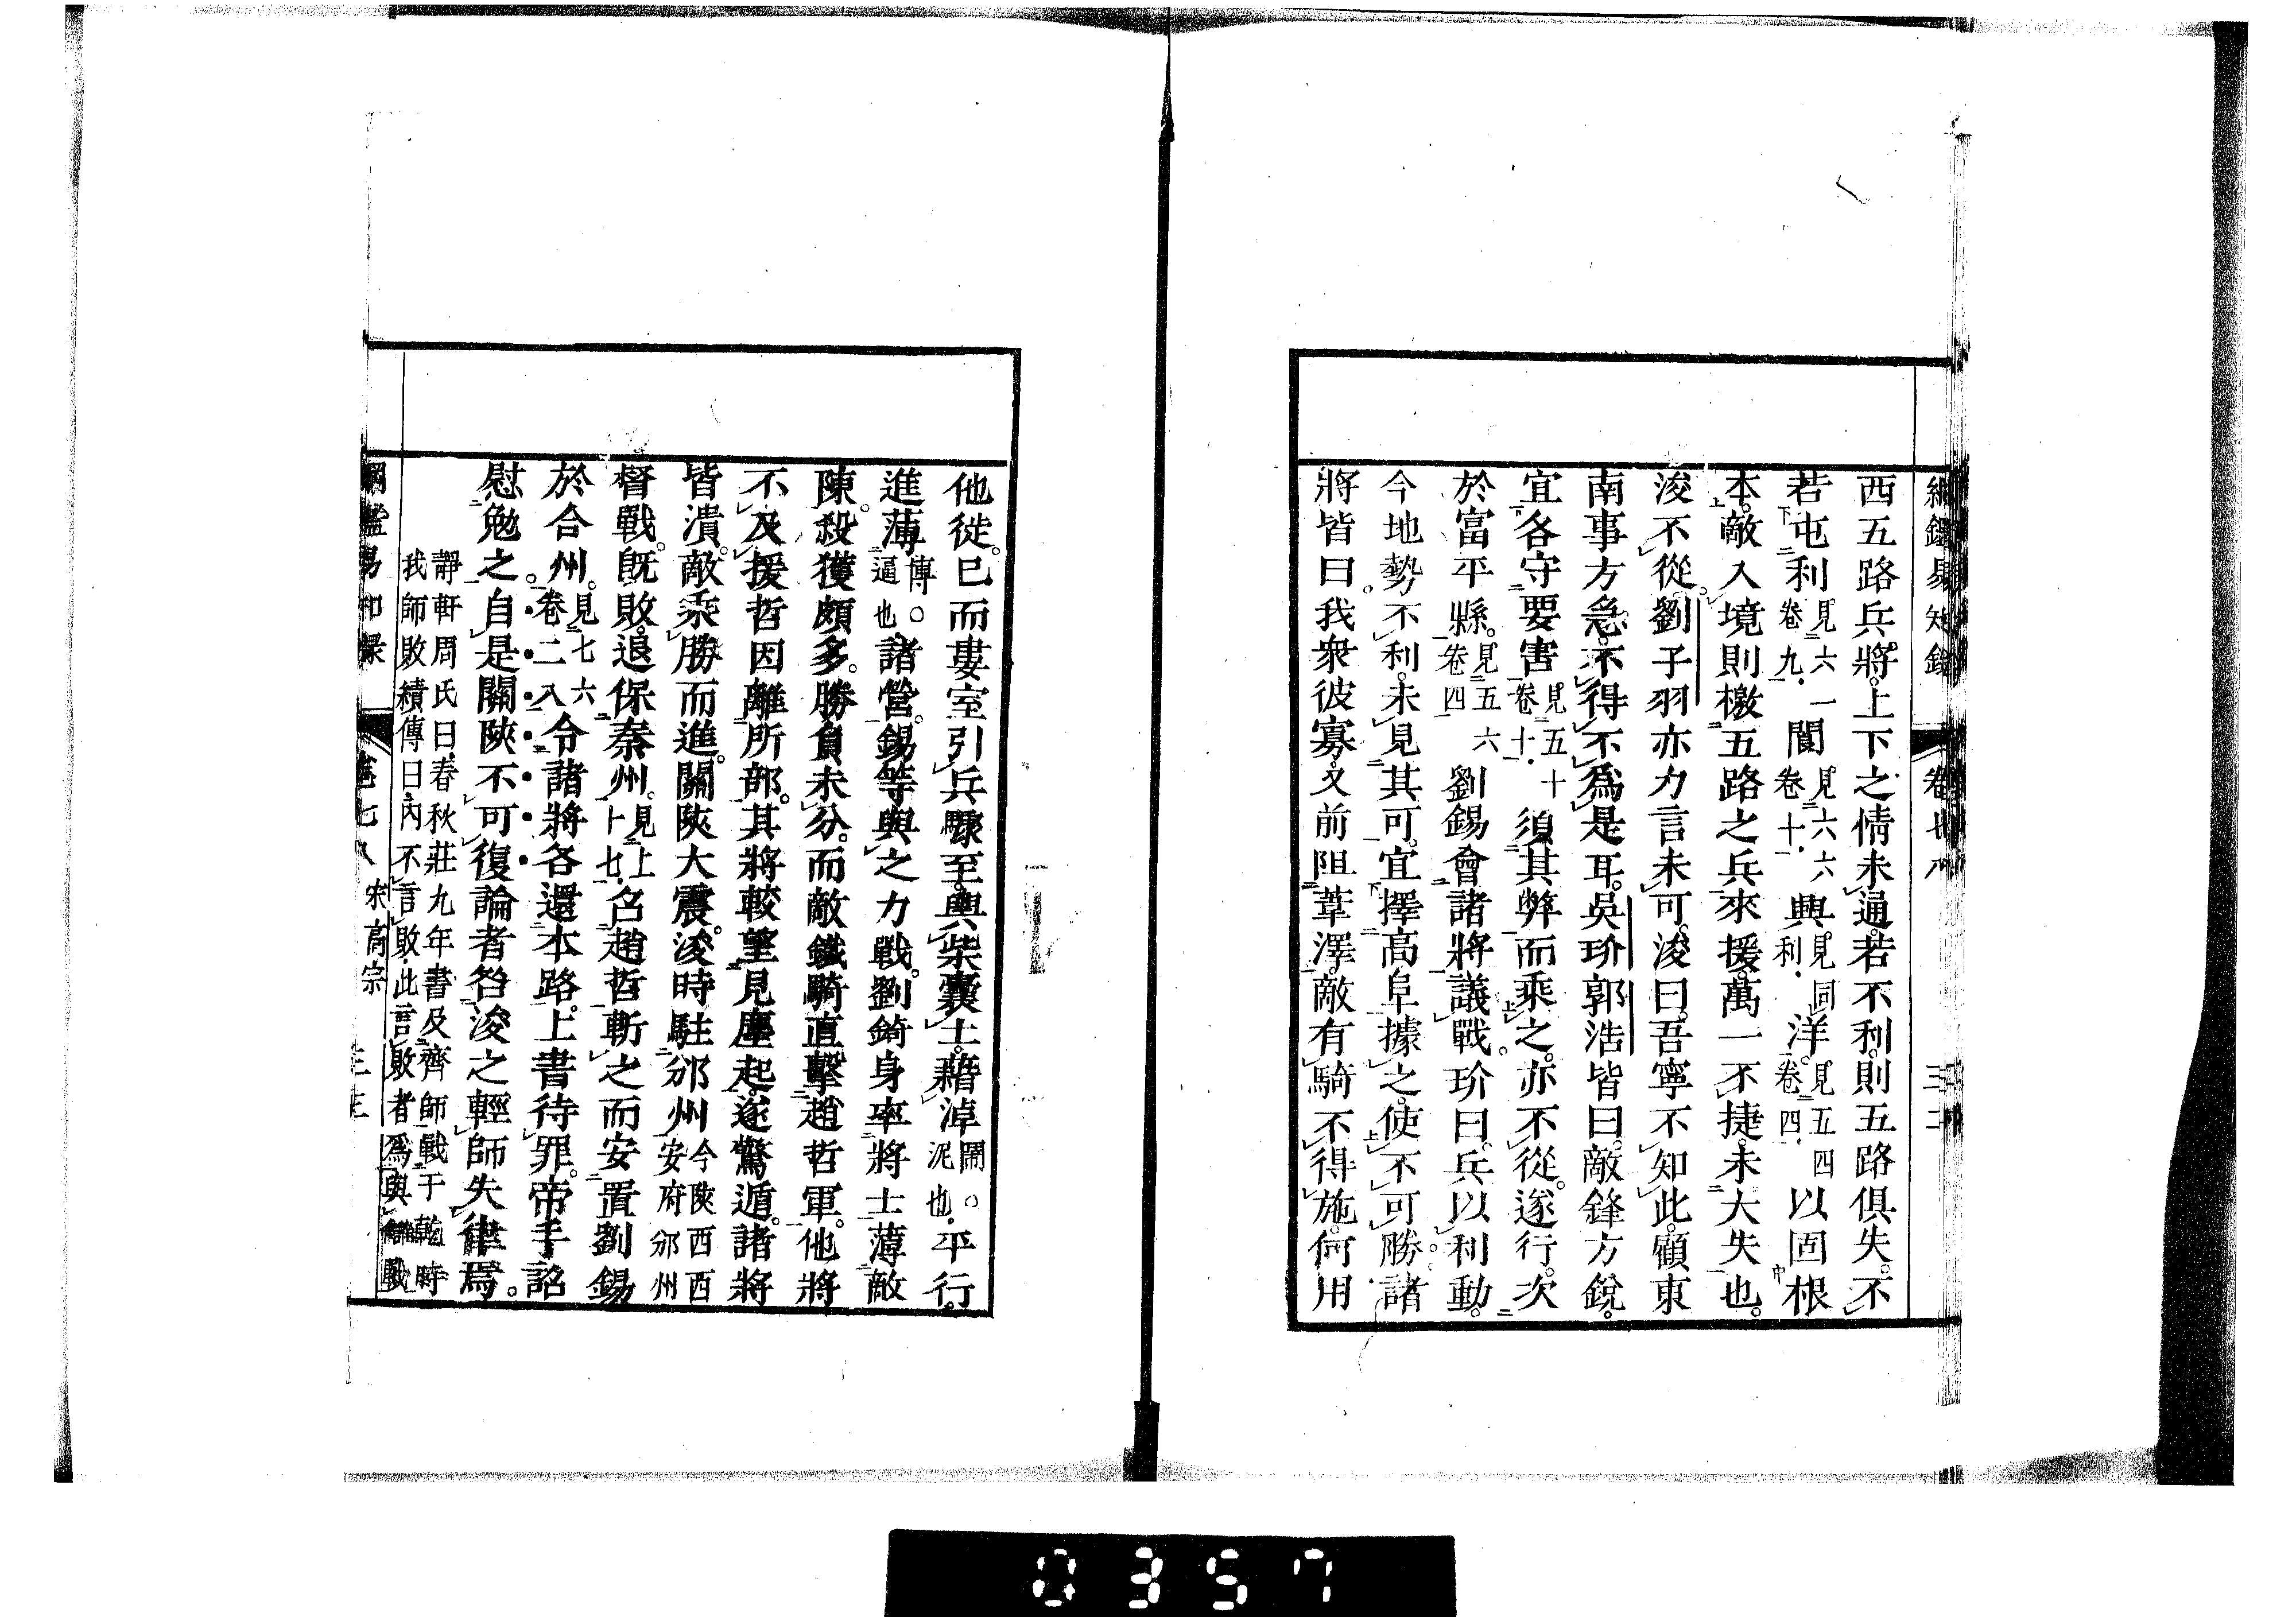 綱鑑易知錄 卷七八 三二
西五路兵將上下之情未通若不利則五路俱失不
若屯利見六一卷九閬見六六卷十一興見同利洋見五四卷四以固根
本敵入境則檄五路之兵來援萬一不捷未大失也
浚不從劉子羽亦力言未可浚曰吾寧不知此顧東
南事方急不得不爲是耳吳玠郭浩皆曰敵鋒方銳
宜各守要害見五十卷十一須其弊而乘之亦不從遂行次
於富平縣見五六卷四劉錫會諸將議戰玠曰兵以利動
今地勢不利未見其可宜擇高阜據之使不可勝諸
將皆曰我衆彼寡又前阻葦澤敵有騎不得施何用
他徙已而婁室引兵驟至輿柴囊土藉淖鬧泥也平行
進薄傅逼也諸營錫等與之力戰劉錡身率將士薄敵
陳殺獲頗多勝負未分而敵鐵騎直擊趙哲軍他將
不及援哲因離所部其將較望見塵起遂驚遁諸將
皆潰敵乘勝而進關陝大震浚時駐邠州今陝西西安府邠州
督戰旣敗退保秦州見上卜七召趙哲斬之而安置劉錫
於合州見七六卷二八令諸將各還本路上書待罪帝手詔
慰勉之自是關陝不可復論者咎浚之輕師失律焉
靜軒周氏曰春秋莊九年書及齊師戰于乾時
我師敗績傳曰內不言敗此言敗者爲與讎戰
綱鑑易知錄 卷七八 宋高宗 三三
0357